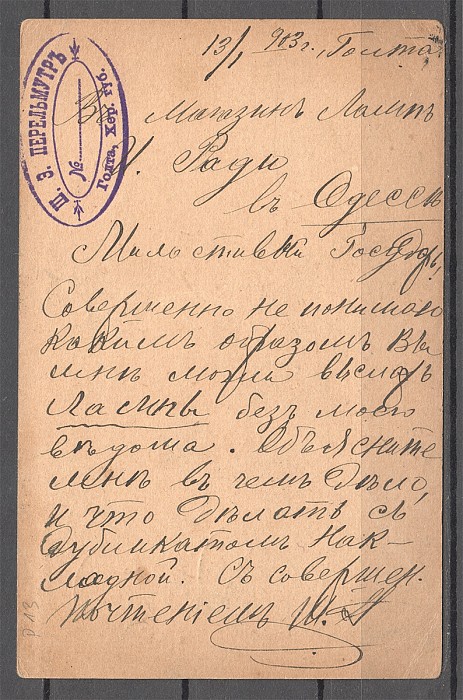 13/I 903 г., Голта
Ш. З. ПЕРЕЛЬМУТРЪ
№
Голта, Хер. губ.
Въ Магазинъ Лампъ
И. Ради
въ Одессѣ
Милостивый Государь,
Совершенно не понимаю
какимъ образомъ Вы
мнѣ могли выслать
Лампы безъ моего
вѣдома. Объясните
мнѣ въ чемъ дѣло,
и что дѣлать съ
дубликатомъ нак-
ладной. Съ совершен.
почтеніемъ Ш. П
р 13